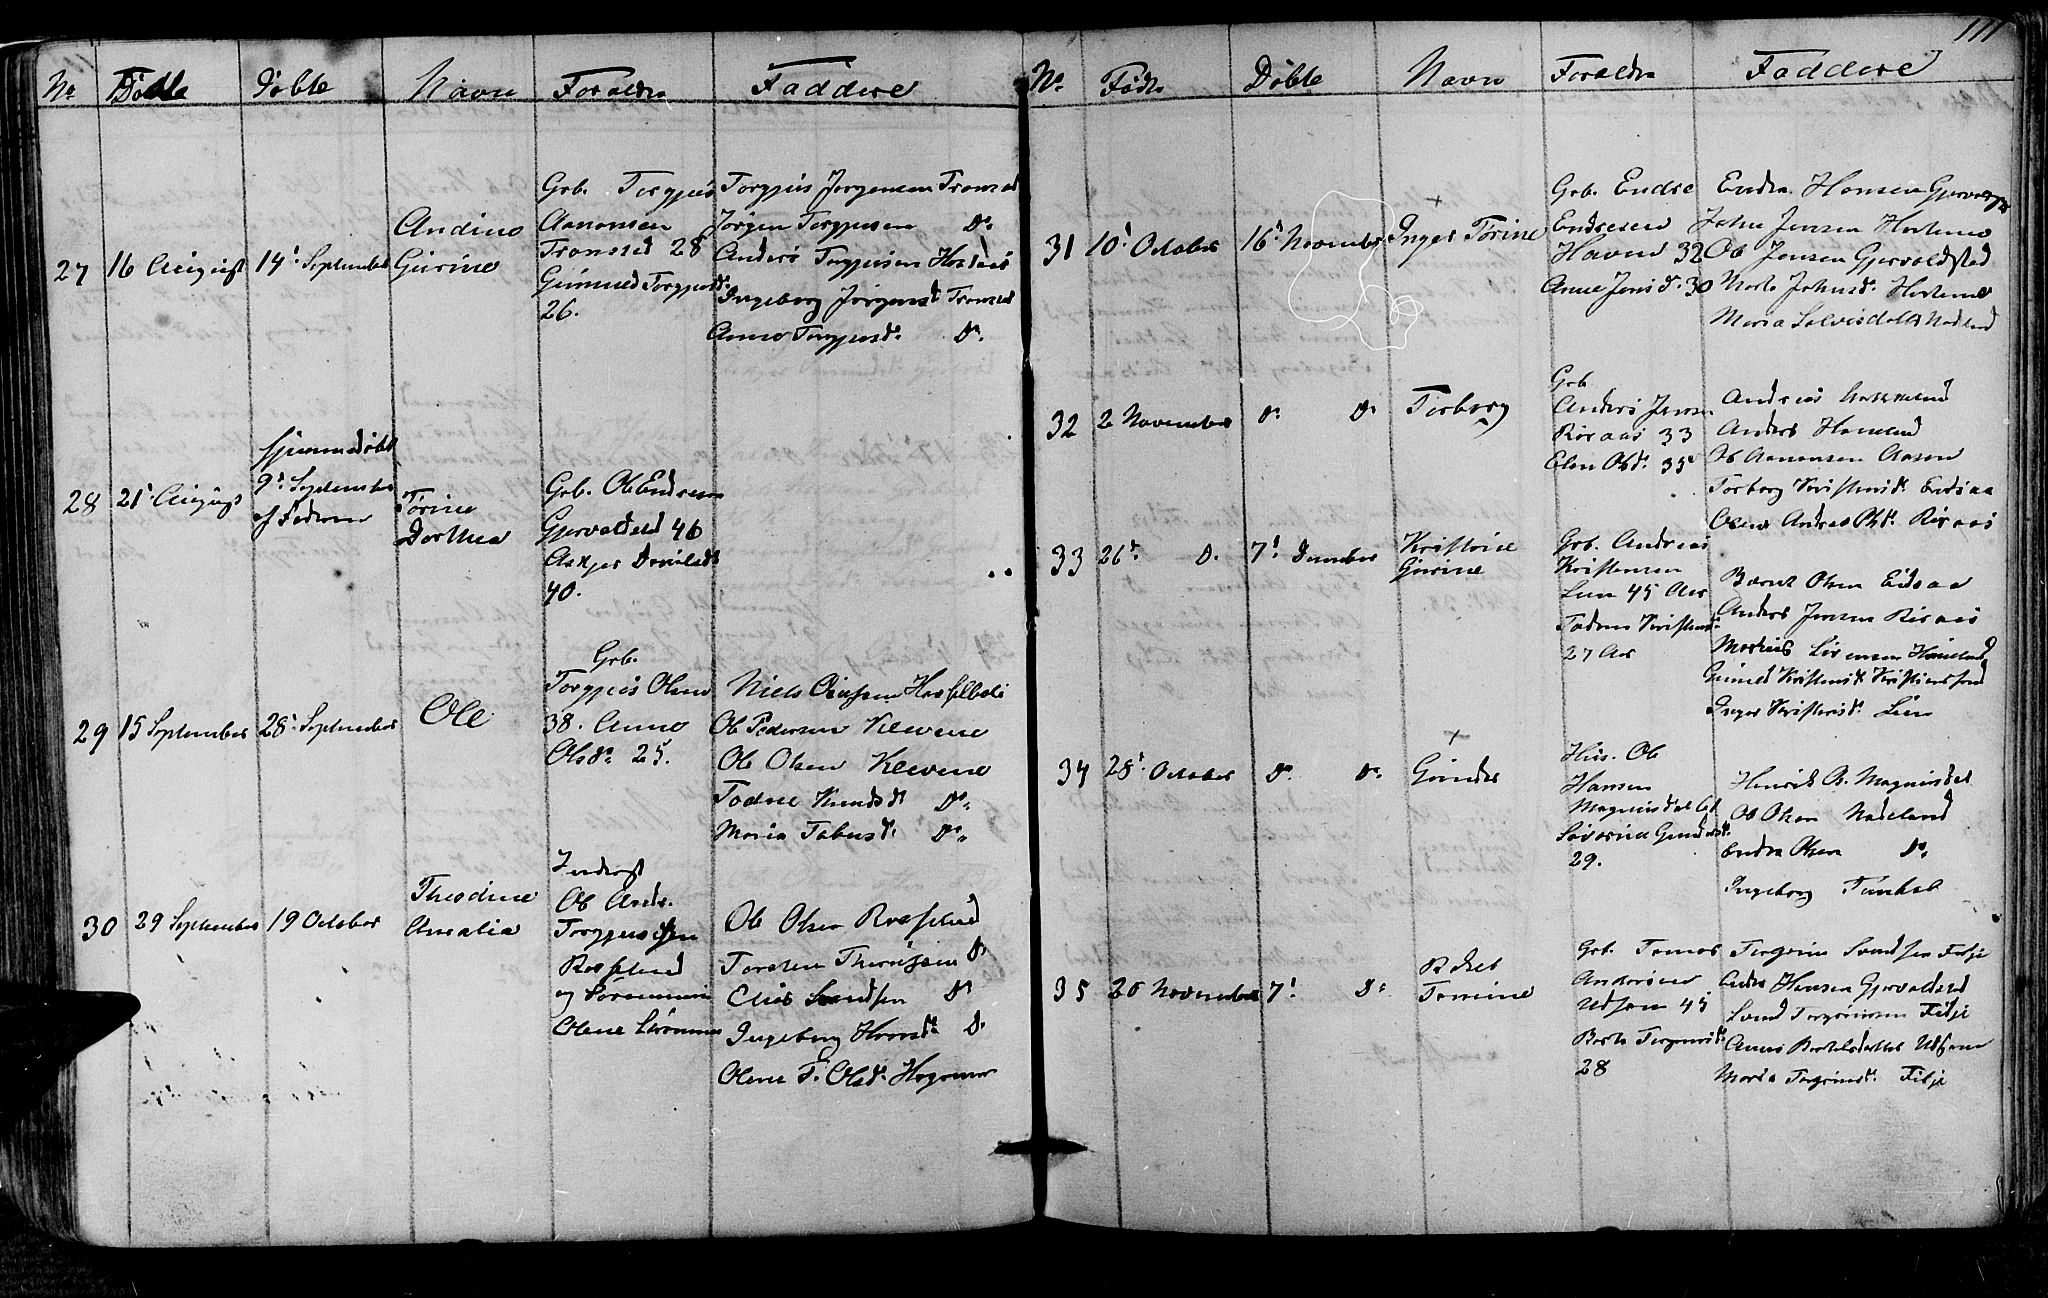 111
No Fødte Døbte Navn Forældre Faddere
27 16 August 14d September
Andine
Gurine
Grb. Torgjus
Aanonsen
Tronsted 28
Gunnild Torgjusd.
26.
Torgjus Jorgensen Tronsted
Jörgen Torgjusen Do
Anders Torgjusen
Ingeborg Jörgensd. Tronsted
Anne Torgjusd. Do
28 21 August
hjemmedøbt
9d September
af Faderen
Torine
Dorthea
Grb. Ole Endresen
Gjervoldsted 46
Asgjer Danielsd.
40.
29 15 September 28d September
Ole
Grb.
Torgjus Olsen
38. Anne
Olsd. 25.
Niels
Ole Pedersen Klevene
Ole Olsen Klevene
Todne Knudsd. Do
Maria Tobiasd. Do
30 29 September 19 October
Theodine
Amalia
Inderst
Ole Andr.
Torgjusen
Rosseland
og
Olene
Ole Olsen Rosseland
Torsten Do
Elias Svendsen Do
Ingeborg Do
Olene T. Olsd.
No Fødte Døbte Navn Forældre Faddere
31 10d October 16d November
Inger Torine
Grb. Endre
Endresen
Haven 32
Anne Jensd. 30
Endre Hansen
John Jensen
Ole Jensen Gjervoldsted
Marte Johnsd.
Maria
32 2 November Do Do
Torborg
Grb.
Anders Jensen
Risaas 33
Elen Olsd. 35
Andreas
Anders
Ole Aanonsen Aasen
Torborg Kristensd. Eidsaa
Olene Andrea Olsd. Risaas
33 26d Do 7d December
Kristine
Gurine
Grb. Andreas
Kristensen
Lien 45 Aar
Todne Kristensd.
27 Aar
Bernt Olsen Eidsaa
Anders Jensen Risaas
Markus Sørensen
Gunild Kristensd.
Inger Kristensd. Lien
34 28d October Do Do
Gunder
Hus. Ole
Hansen
Magnusdal
Gundersd.
29.
Henrik O. Magnusdal
Ole Olsen Nødeland
Endre Olsen Do
Ingeborg
35 20 November 7d Do
Tomine
Grb. Tomas
Andersen
Udsøen 45
Berte Torgrimsd.
28
Torgrim Svendsen Fidje
Endre Hansen Gjervoldsted
Svend Torgrimsen Fidje
Anne Bertelsdatter Udsøen
Maria Torgrimsd. Fidje